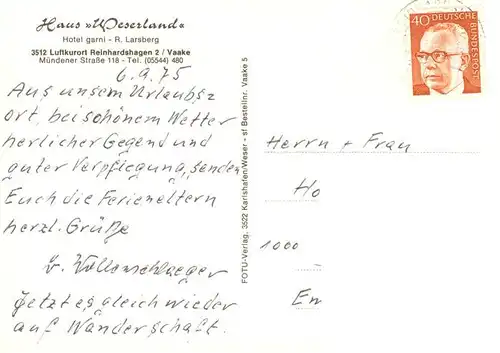 Haus »Weserland«
Hotel garni - R. Larsberg
3512 Luftkurort Reinhardshagen 2 / Vaake
Mündener Straße 118 - Tel. (05544) 480
6.9.75
Aus unsem Urlaubs=
ort, bei schönem Wetter
herlicher Gegend und
guter Verpflegung, senden
Euch die Ferieneltern
herzl. Grüße
Jetzt es gleich wieder
auf Wanderschaft.
FOTU-Verlag, 3522 Karlshafen/Weser - sf Bestellnr. Vaake 5
40 DEUTSCHE
BUNDESPOST
Herrn + Frau
Ho
1000
En